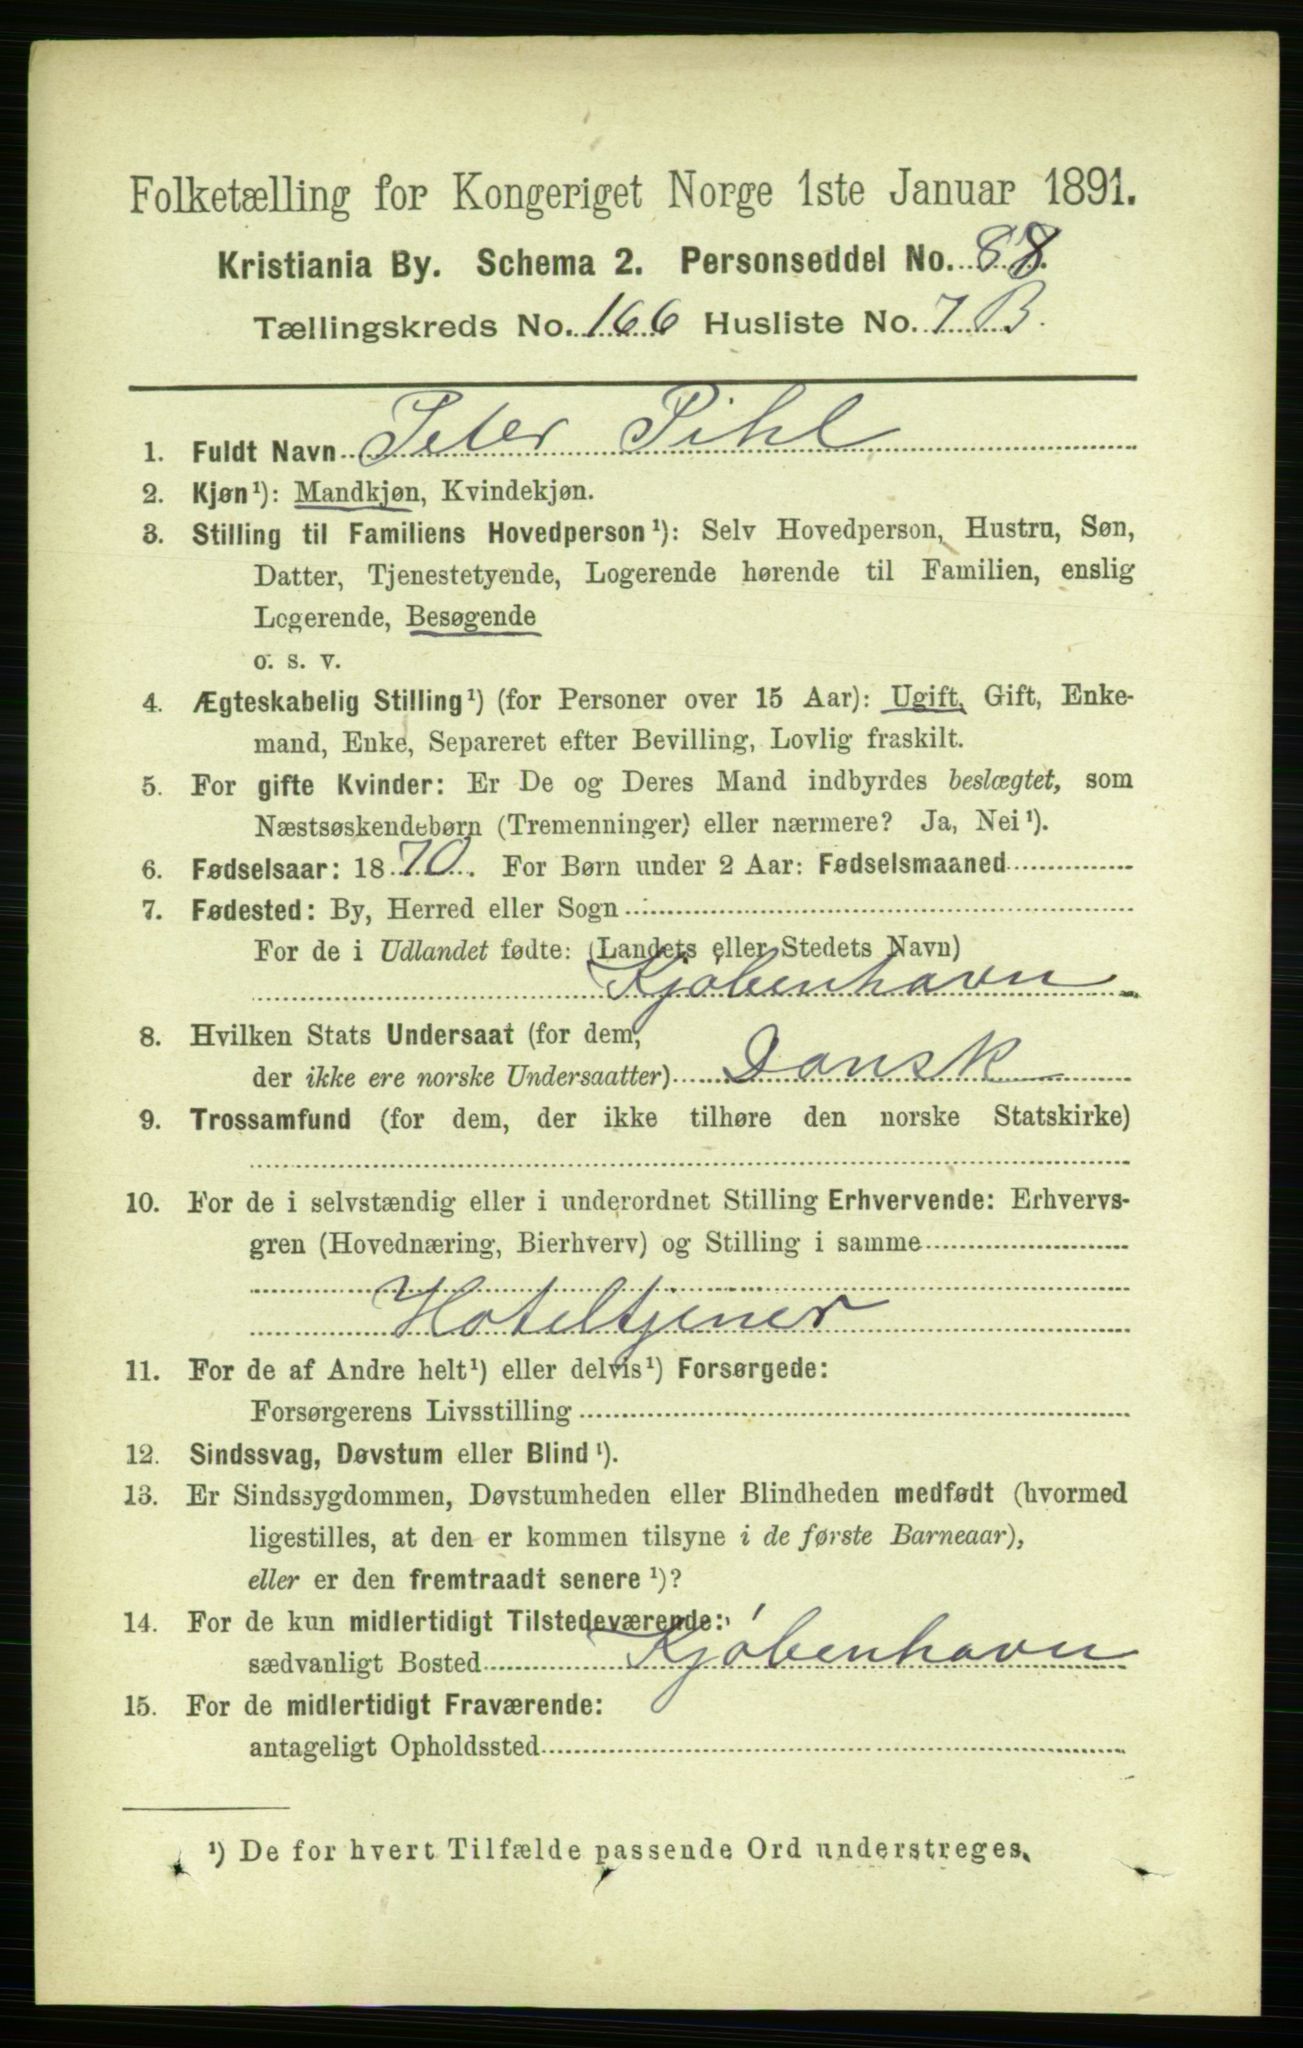 Folketælling for Kongeriget Norge 1ste Januar 1891.
Kristiania By. Schema 2. Personseddel No. 88.
Tællingskreds No. 166 Husliste No. 7 B.
1. Fuldt Navn Peter Pihl
2. Kjøn¹): Mandkjøn, Kvindekjøn.
3. Stilling til Familiens Hovedperson¹): Selv Hovedperson, Hustru, Søn,
Datter, Tjenestetyende, Logerende hørende til Familien, enslig
Logerende, Besøgende
o. s. v.
4. Ægteskabelig Stilling¹) (for Personer over 15 Aar): Ugift, Gift, Enke-
mand, Enke, Separeret efter Bevilling, Lovlig fraskilt.
5. For gifte Kvinder: Er De og Deres Mand indbyrdes beslægtet, som
Næstsøskendebørn (Tremenninger) eller nærmere? Ja, Nei¹).
6. Fødselsaar: 1870. For Børn under 2 Aar: Fødselsmaaned
7. Fødested: By, Herred eller Sogn
For de i Udlandet fødte: (Landets eller Stedets Navn)
Kjøbenhavn
8. Hvilken Stats Undersaat (for dem,
der ikke ere norske Undersaatter) Dansk
9. Trossamfund (for dem, der ikke tilhøre den norske Statskirke)
10. For de i selvstændig eller i underordnet Stilling Erhvervende: Erhvervs-
gren (Hovednæring, Bierhverv) og Stilling i samme
Hoteltjener
11. For de af Andre helt¹) eller delvis¹) Forsørgede:
Forsørgerens Livsstilling
12. Sindssvag, Døvstum eller Blind¹).
13. Er Sindssygdommen, Døvstumheden eller Blindheden medfødt (hvormed
ligestilles, at den er kommen tilsyne i de første Barneaar),
eller er den fremtraadt senere¹)?
14. For de kun midlertidigt Tilstedeværende:
sædvanligt Bosted Kjøbenhavn
15. For de midlertidigt Fraværende:
antageligt Opholdssted
¹) De for hvert Tilfælde passende Ord understreges.